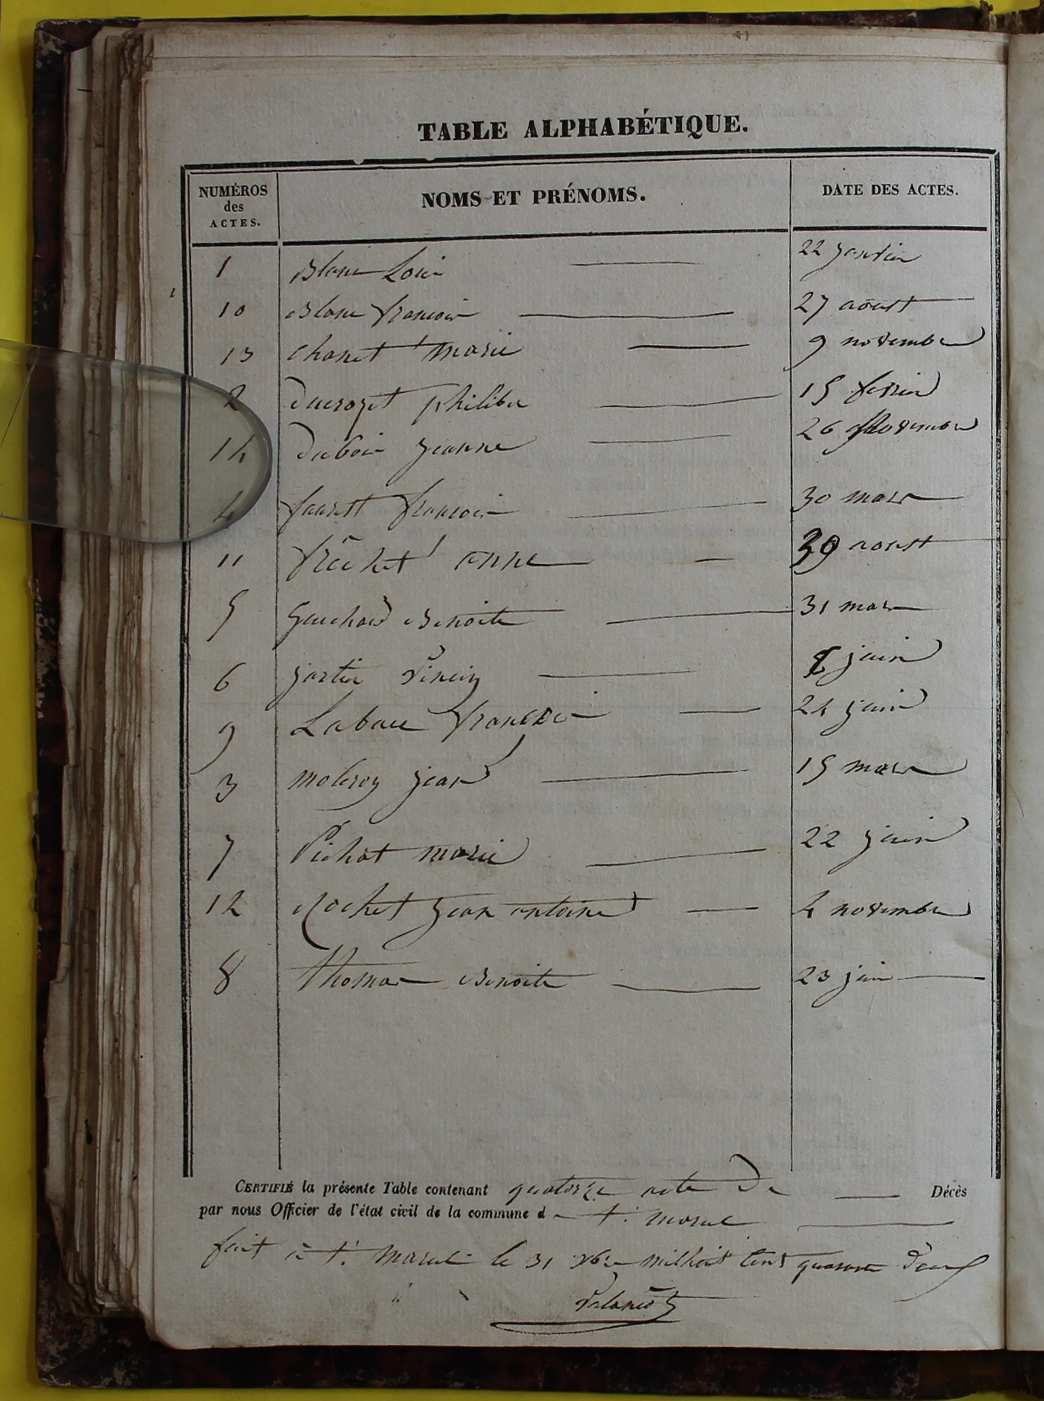 TABLE ALPHABÉTIQUE.
NUMÉROS des ACTES. NOMS ET PRÉNOMS. DATE DES ACTES.
1 Blanc Loui 22 janvier
10 Blanc françois 27 aoust
13 Chanet marie 9 novembre
2 Ducrozet philiber 15 fevrier
14 Duboi jeanne 26 novembre
4 françois 30 mars
11 frêchet anne 30 aoust
5 Guichard Benoite 31 mars
6 jartier juin
9 24 juin
3 jean 15 mars
7 Pichat marie 22 juin
12 Rochet jean antoine 4 novembre
8 thomas Benoite 23 juin
CERTIFIÉ la présente Table contenant quatorze acte de Décès
par nous Officier de l'état civil de la commune de t. marcel
fait à t. marcel le 31 xbre milhuit cent quarante deux